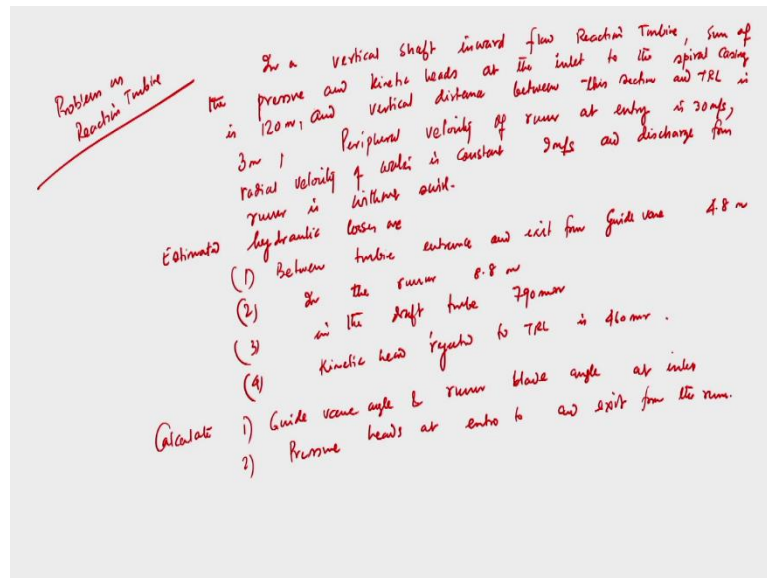 Problem on
Reaction Turbine
In a vertical shaft inward flow Reaction Turbine, Sum of
the pressure and kinetic heads at the inlet to the spiral casing
is 120 m, and vertical distance between this section and TRL is
3m, Peripheral velocity of runner at entry is 30 m/s,
radial velocity of water is constant 9m/s and discharge from
runner is without swirl.
Estimated hydraulic losses are
(1) Between turbine entrance and exit from guide vane 4.8 m
(2) In the runner 8.8 m
(3) in the draft tube 790mm
(4) Kinetic head rejected to TRL is 460mm.
Calculate 1) Guide vane angle & runner blade angle at inlet
2) Pressure heads at entry to and exit from the runner.